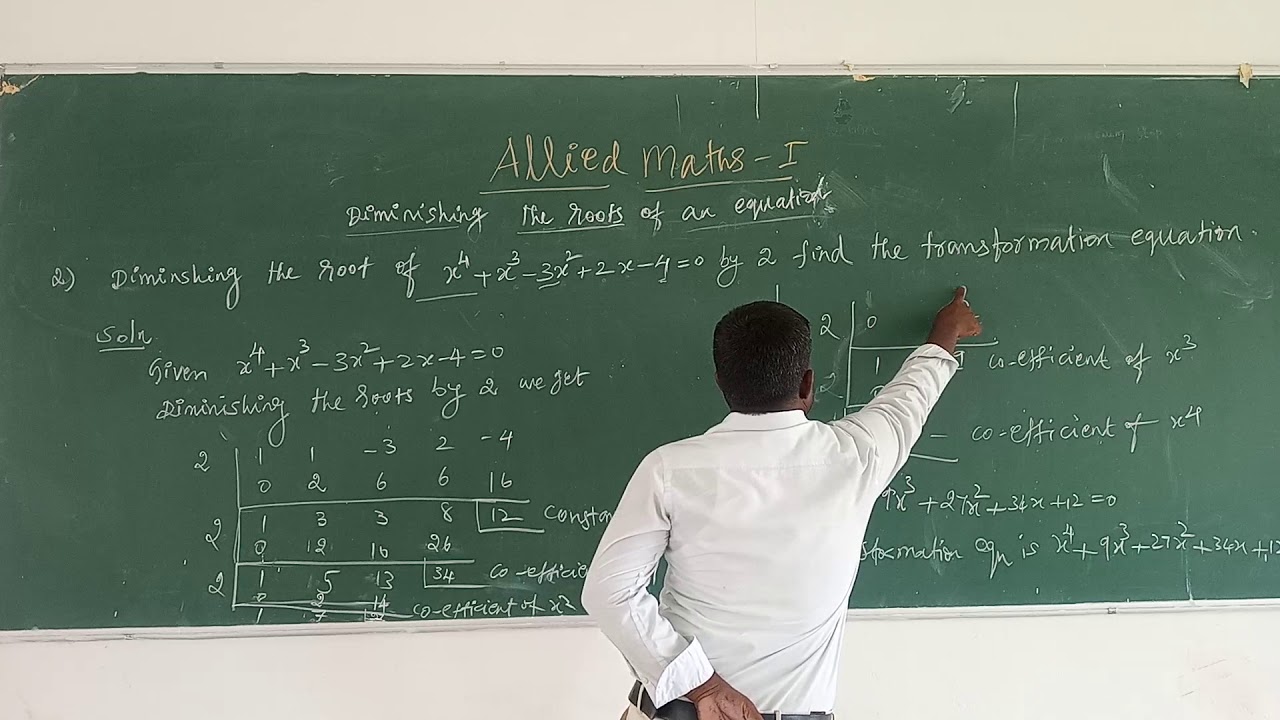 Allied Maths - I
Diminishing the roots of an equation
2) Diminshing the root of x⁴+x³-3x²+2x-4=0 by 2 find the transformation equation.
Soln
Given x⁴+x³-3x²+2x-4=0
Diminishing the roots by 2 we get
2 | 1 1 -3 2 -4
0 2 6 6 16
2 | 1 3 3 8 |12
0 10 26
2 | 1 5 13 |34
0 2 14
1 7 co-efficient of x²
2 | 0
1 co-efficient of x³
co-efficient of x⁴
9x³+27x²+34x+12=0
eqn is x⁴+9x³+27x²+34x+